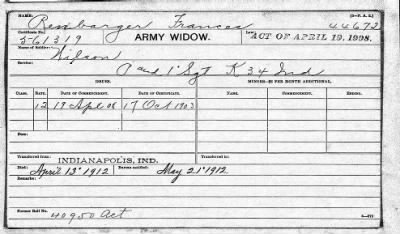 NAME: Rembarger Frances [3—P. A. G.] 44672
Certificate No. 561319 ARMY WIDOW. Law: ACT OF APRIL 19, 1908.
Name of Soldier: Wilson
Service: P and 1" Sgt K 34 Ind
ISSUES. MINORS—$2 PER MONTH ADDITIONAL.
CLASS. RATE. DATE OF COMMENCEMENT. DATE OF CERTIFICATE. NAME. COMMENCING. ENDING.
12 19 Apl 08 17 Oct 1903
Transferred from INDIANAPOLIS, IND. Transferred to
Died: April 13" 1912 Bureau notified: May 21" 1912
Remarks:
Former Roll No. 40950 Act